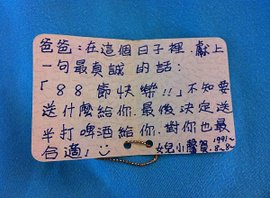 爸爸:在這個日子裡.獻上
一句最真誠的話:
「88節快樂!!」不知要
送什麼給你.最後決定送
半打啤酒給你.對你也最
合適!
女兒小馨賀 1991~8~8~